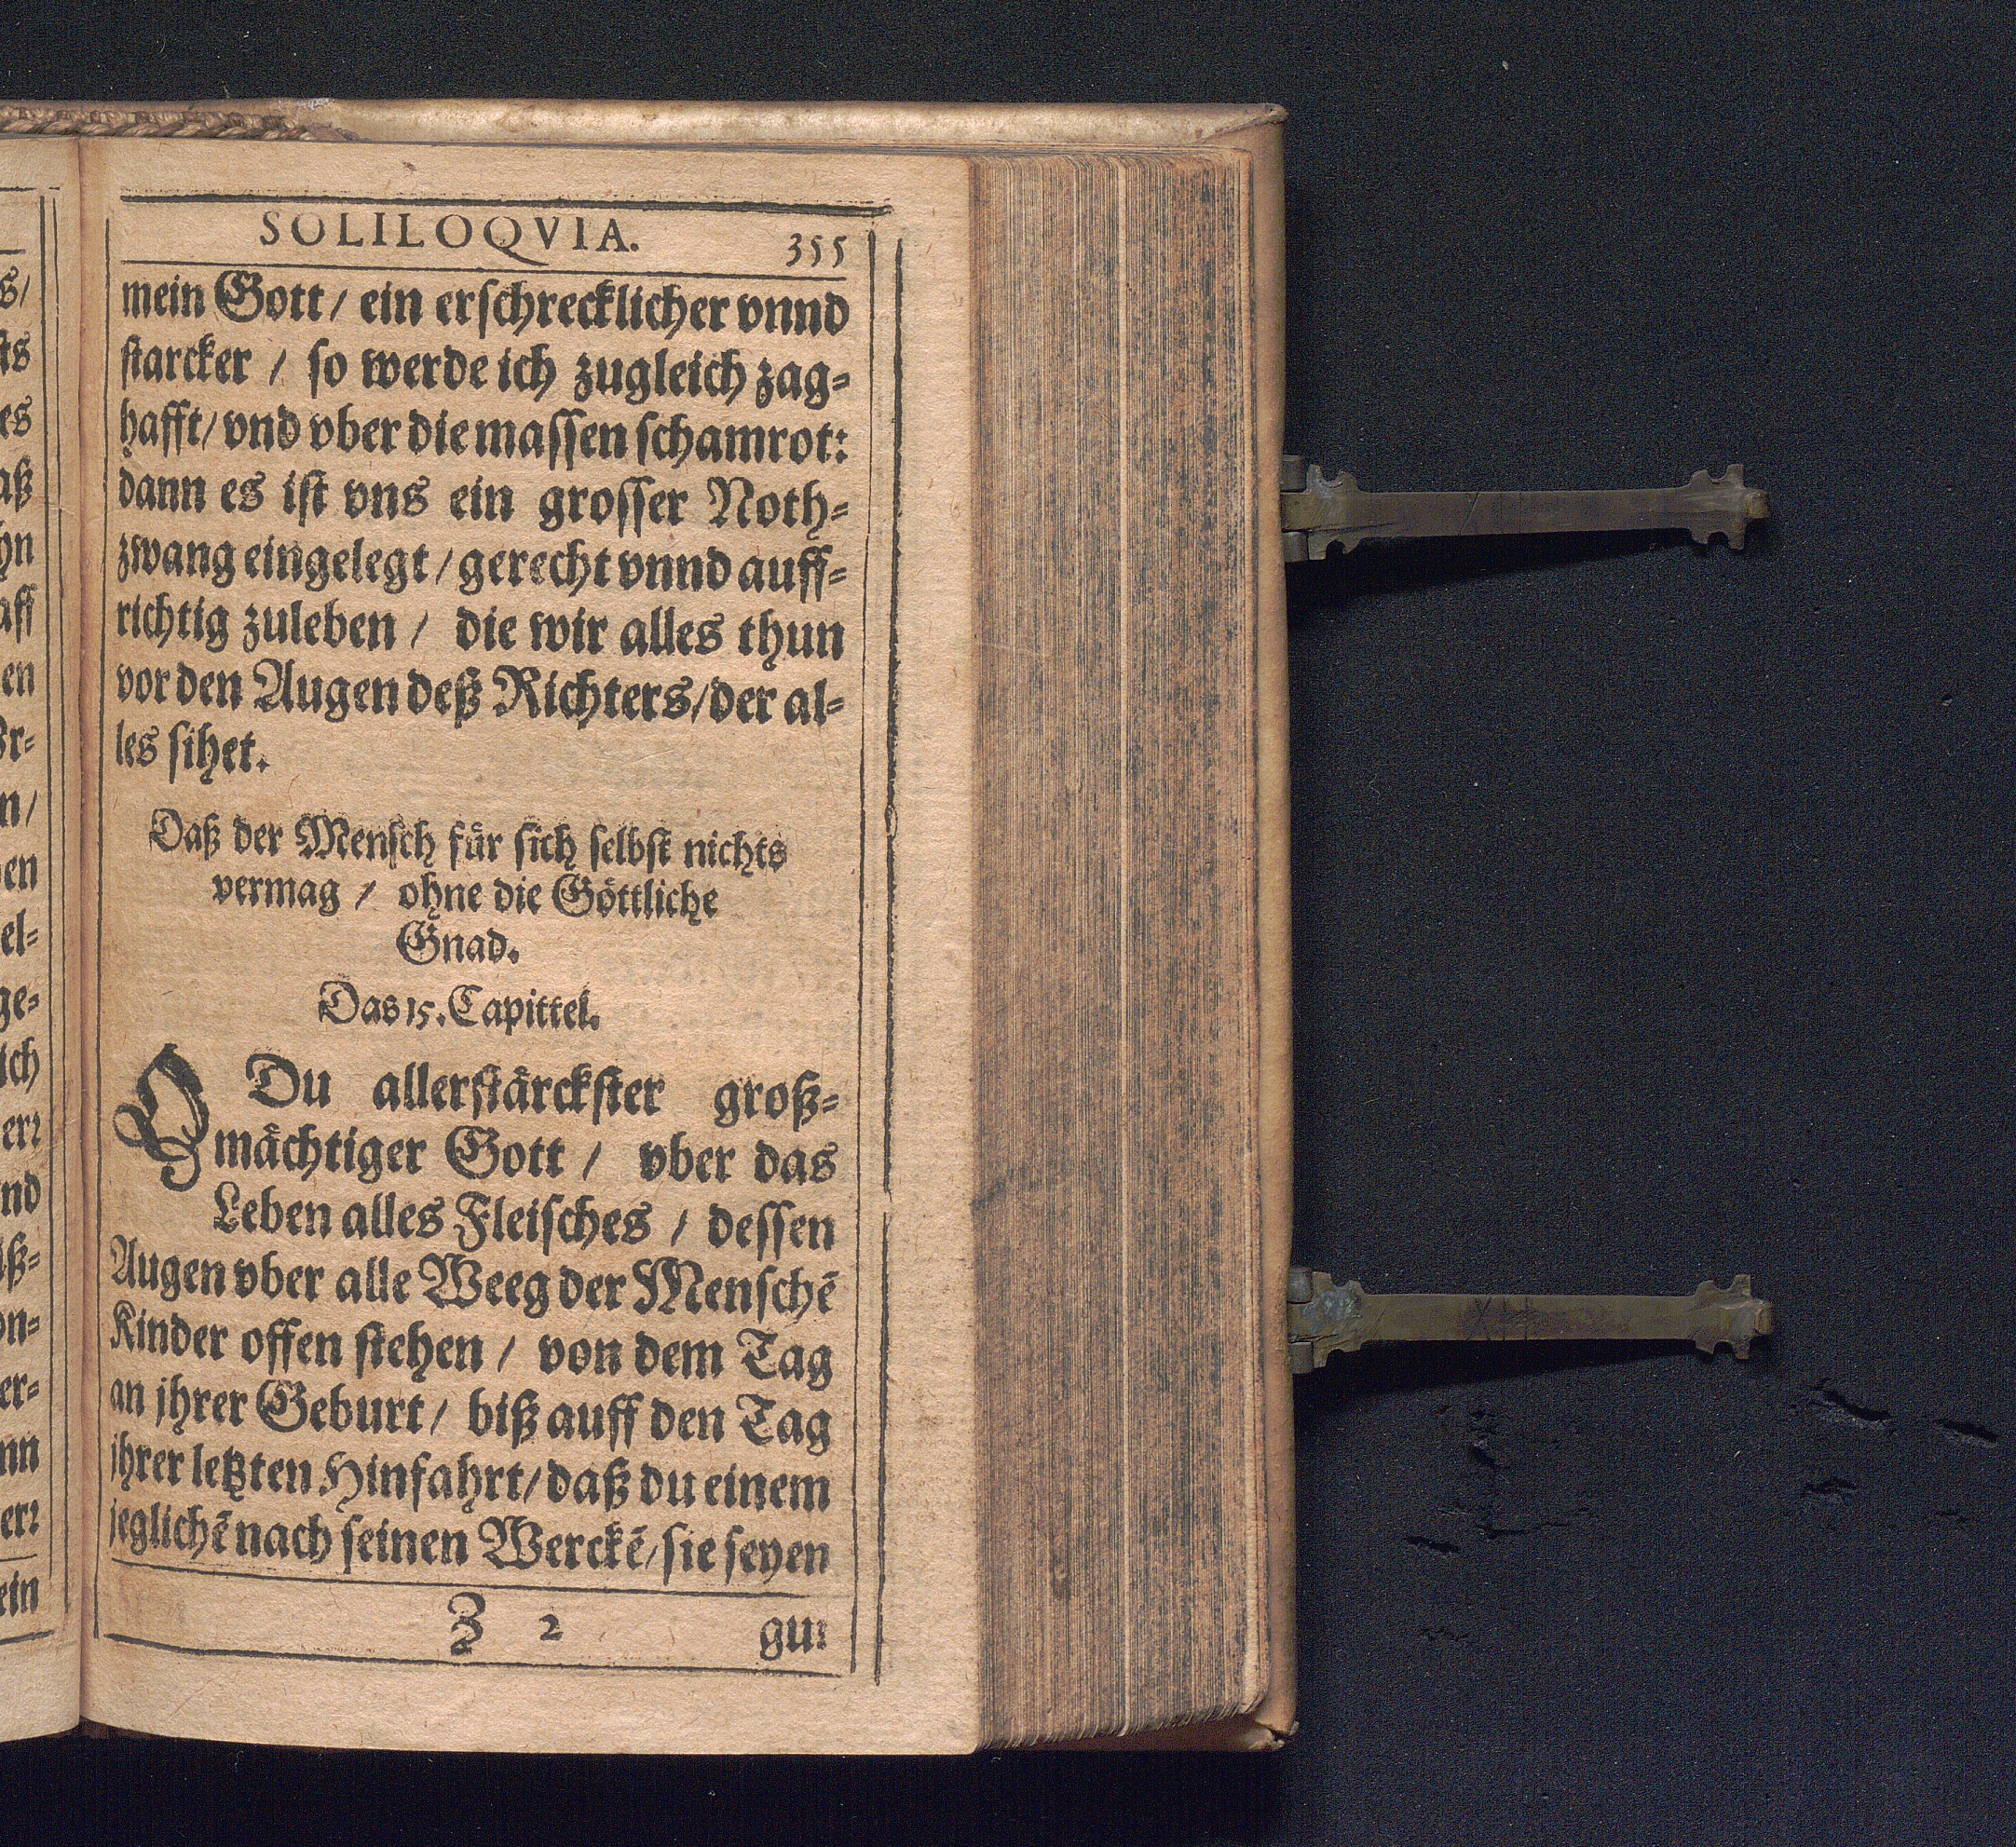 SOLILOQVIA. 355
mein Gott / ein erschrecklicher vnnd
starcker / so werde ich zugleich zag-
hafft / vnd vber die massen schamrot:
dann es ist vns ein grosser Noth-
zwang eingelegt / gerecht vnnd auff-
richtig zuleben / die wir alles thun
vor den Augen deß Richters / der al-
les sihet.
Daß der Mensch für sich selbst nichts
vermag / ohne die Göttliche
Gnad.
Das 15. Capittel.
O Du allerstärckster groß-
mächtiger Gott / vber das
Leben alles Fleisches / dessen
Augen vber alle Weeg der Menschē
Kinder offen stehen / von dem Tag
an jhrer Geburt / biß auff den Tag
jhrer letzten Hinfahrt / daß du einem
jeglichē nach seinen Werckē / sie seyen
Z 2 gut